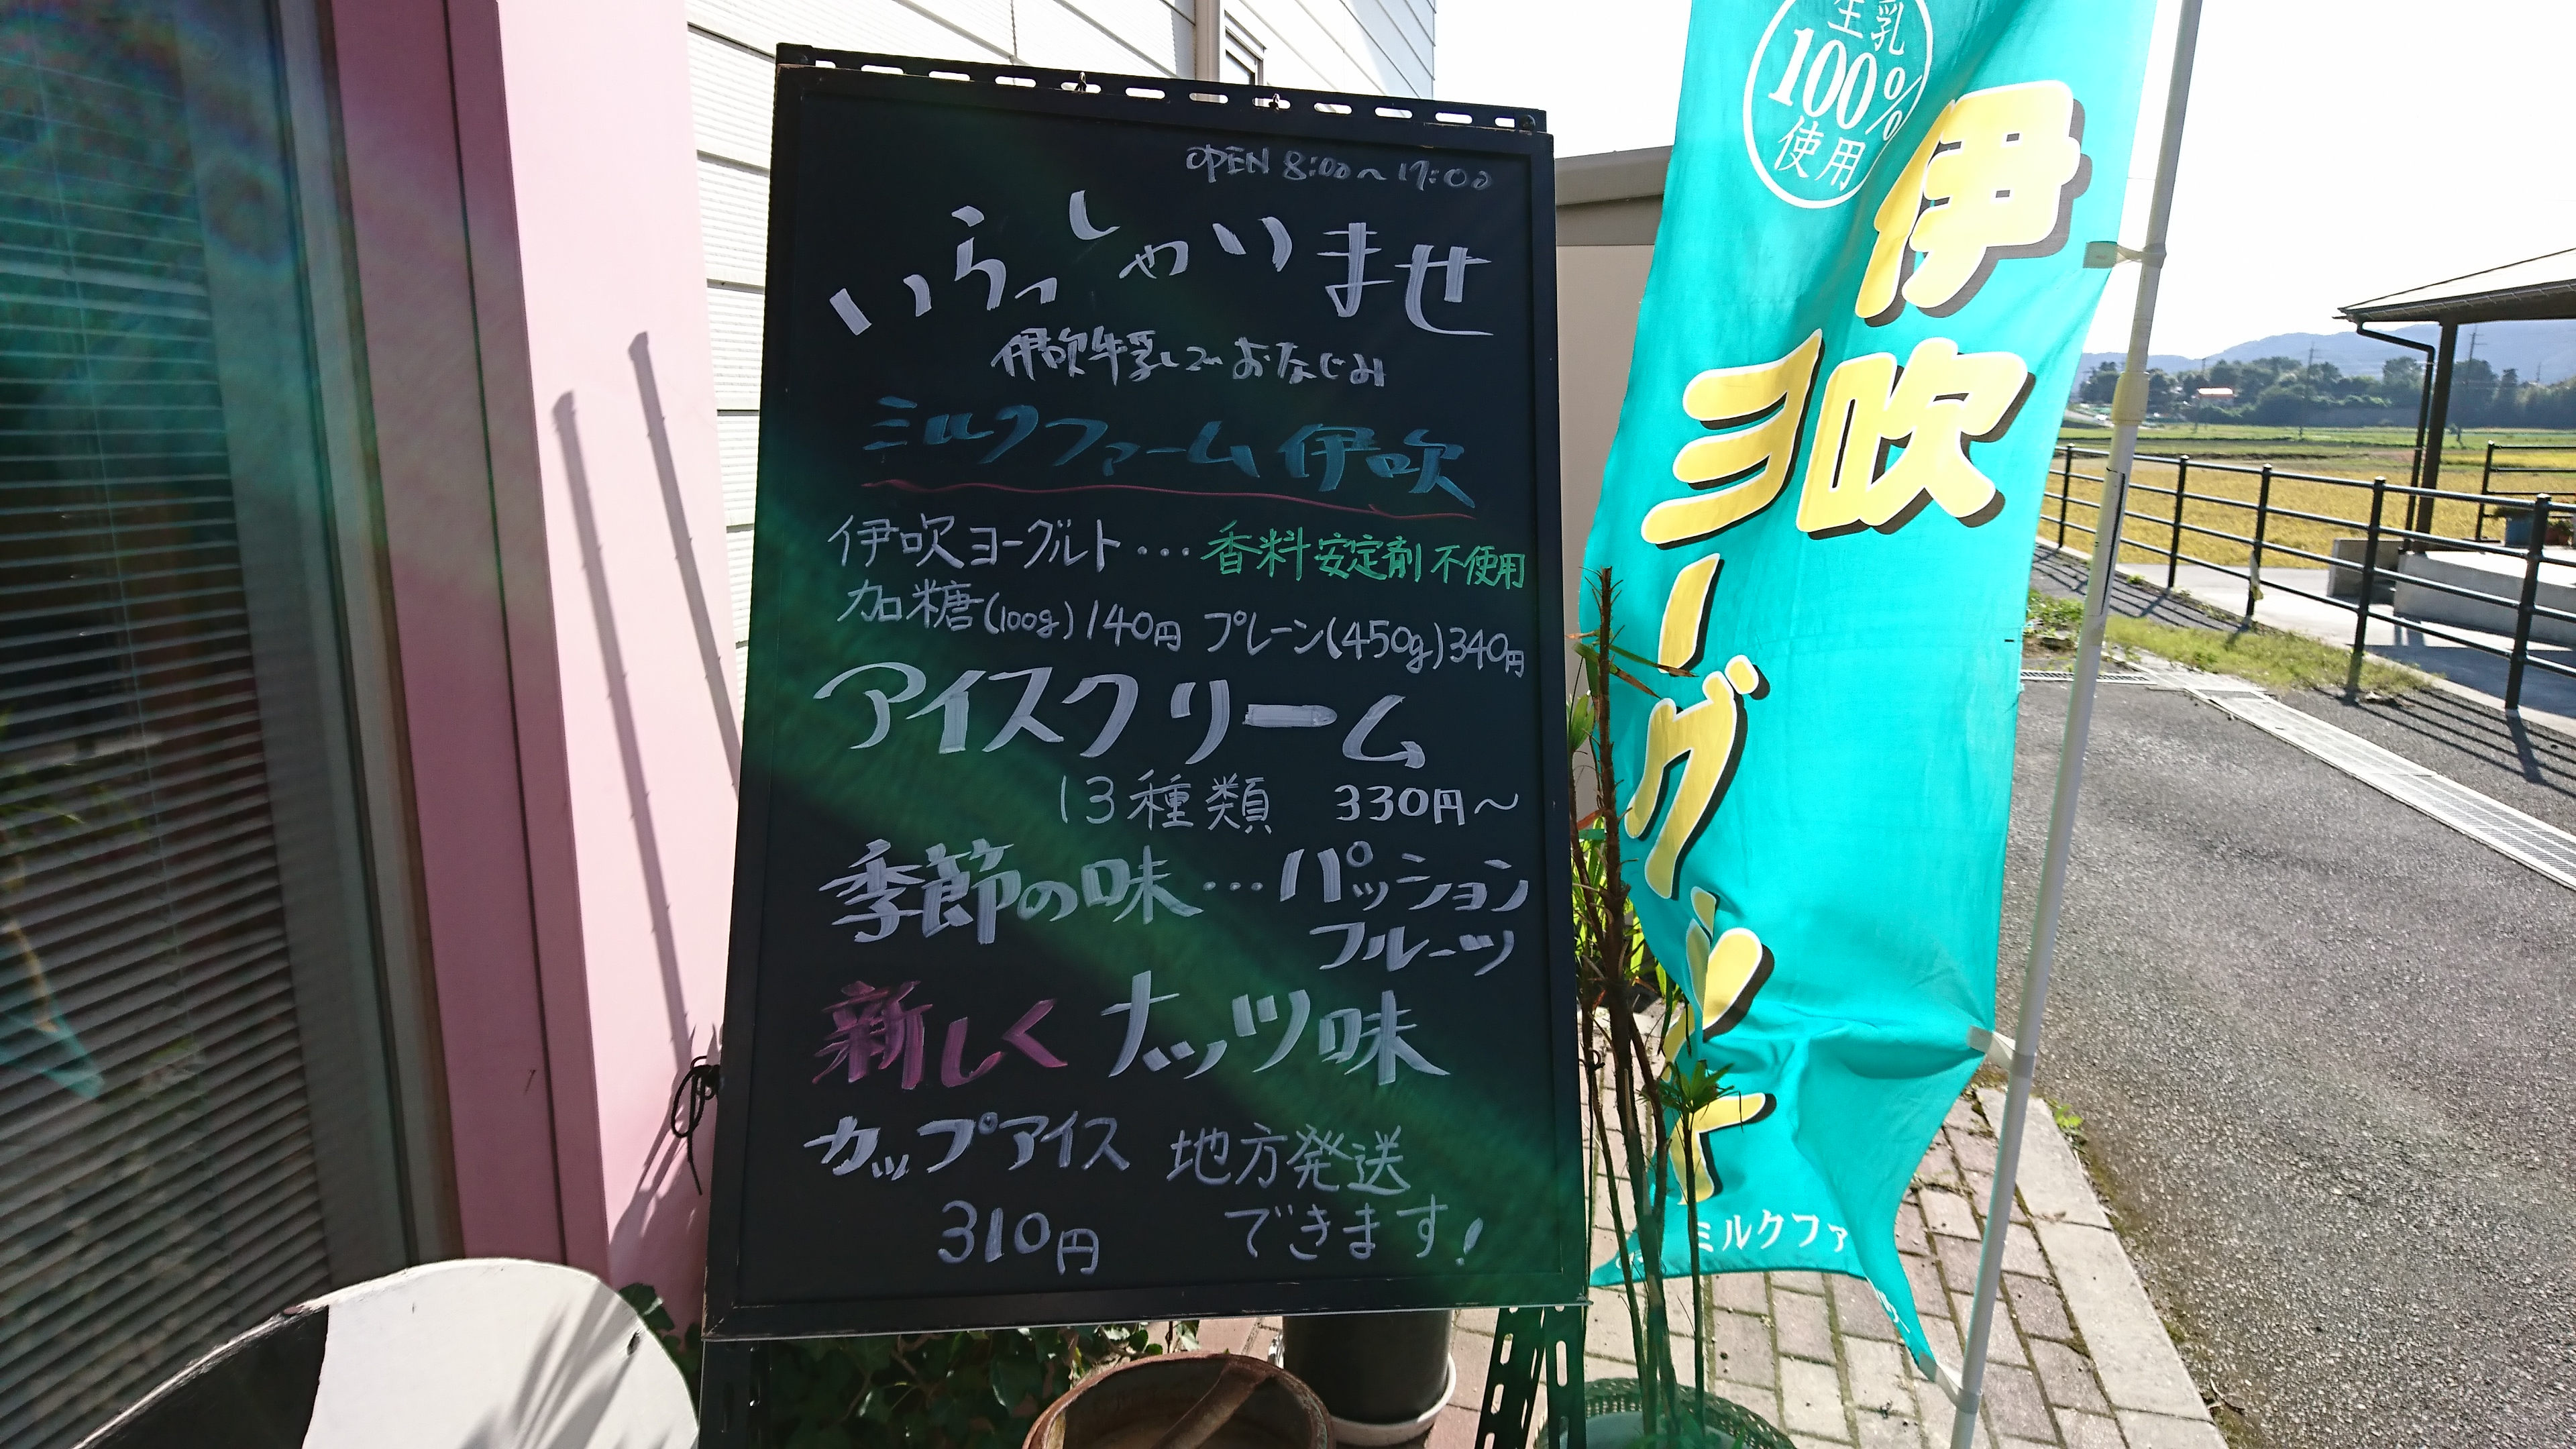 OPEN 8:00〜17:00
いらっしゃいませ
伊吹牛乳でおなじみ
ミルクファーム伊吹
伊吹ヨーグルト・・・香料安定剤不使用
加糖(100g)140円 プレーン(450g)340円
アイスクリーム
13種類 330円〜
季節の味・・・パッション
フルーツ
新しくナッツ味
カップアイス 地方発送
310円 できます!
生乳
100%
使用
伊吹
ヨーグルト
ミルクファ